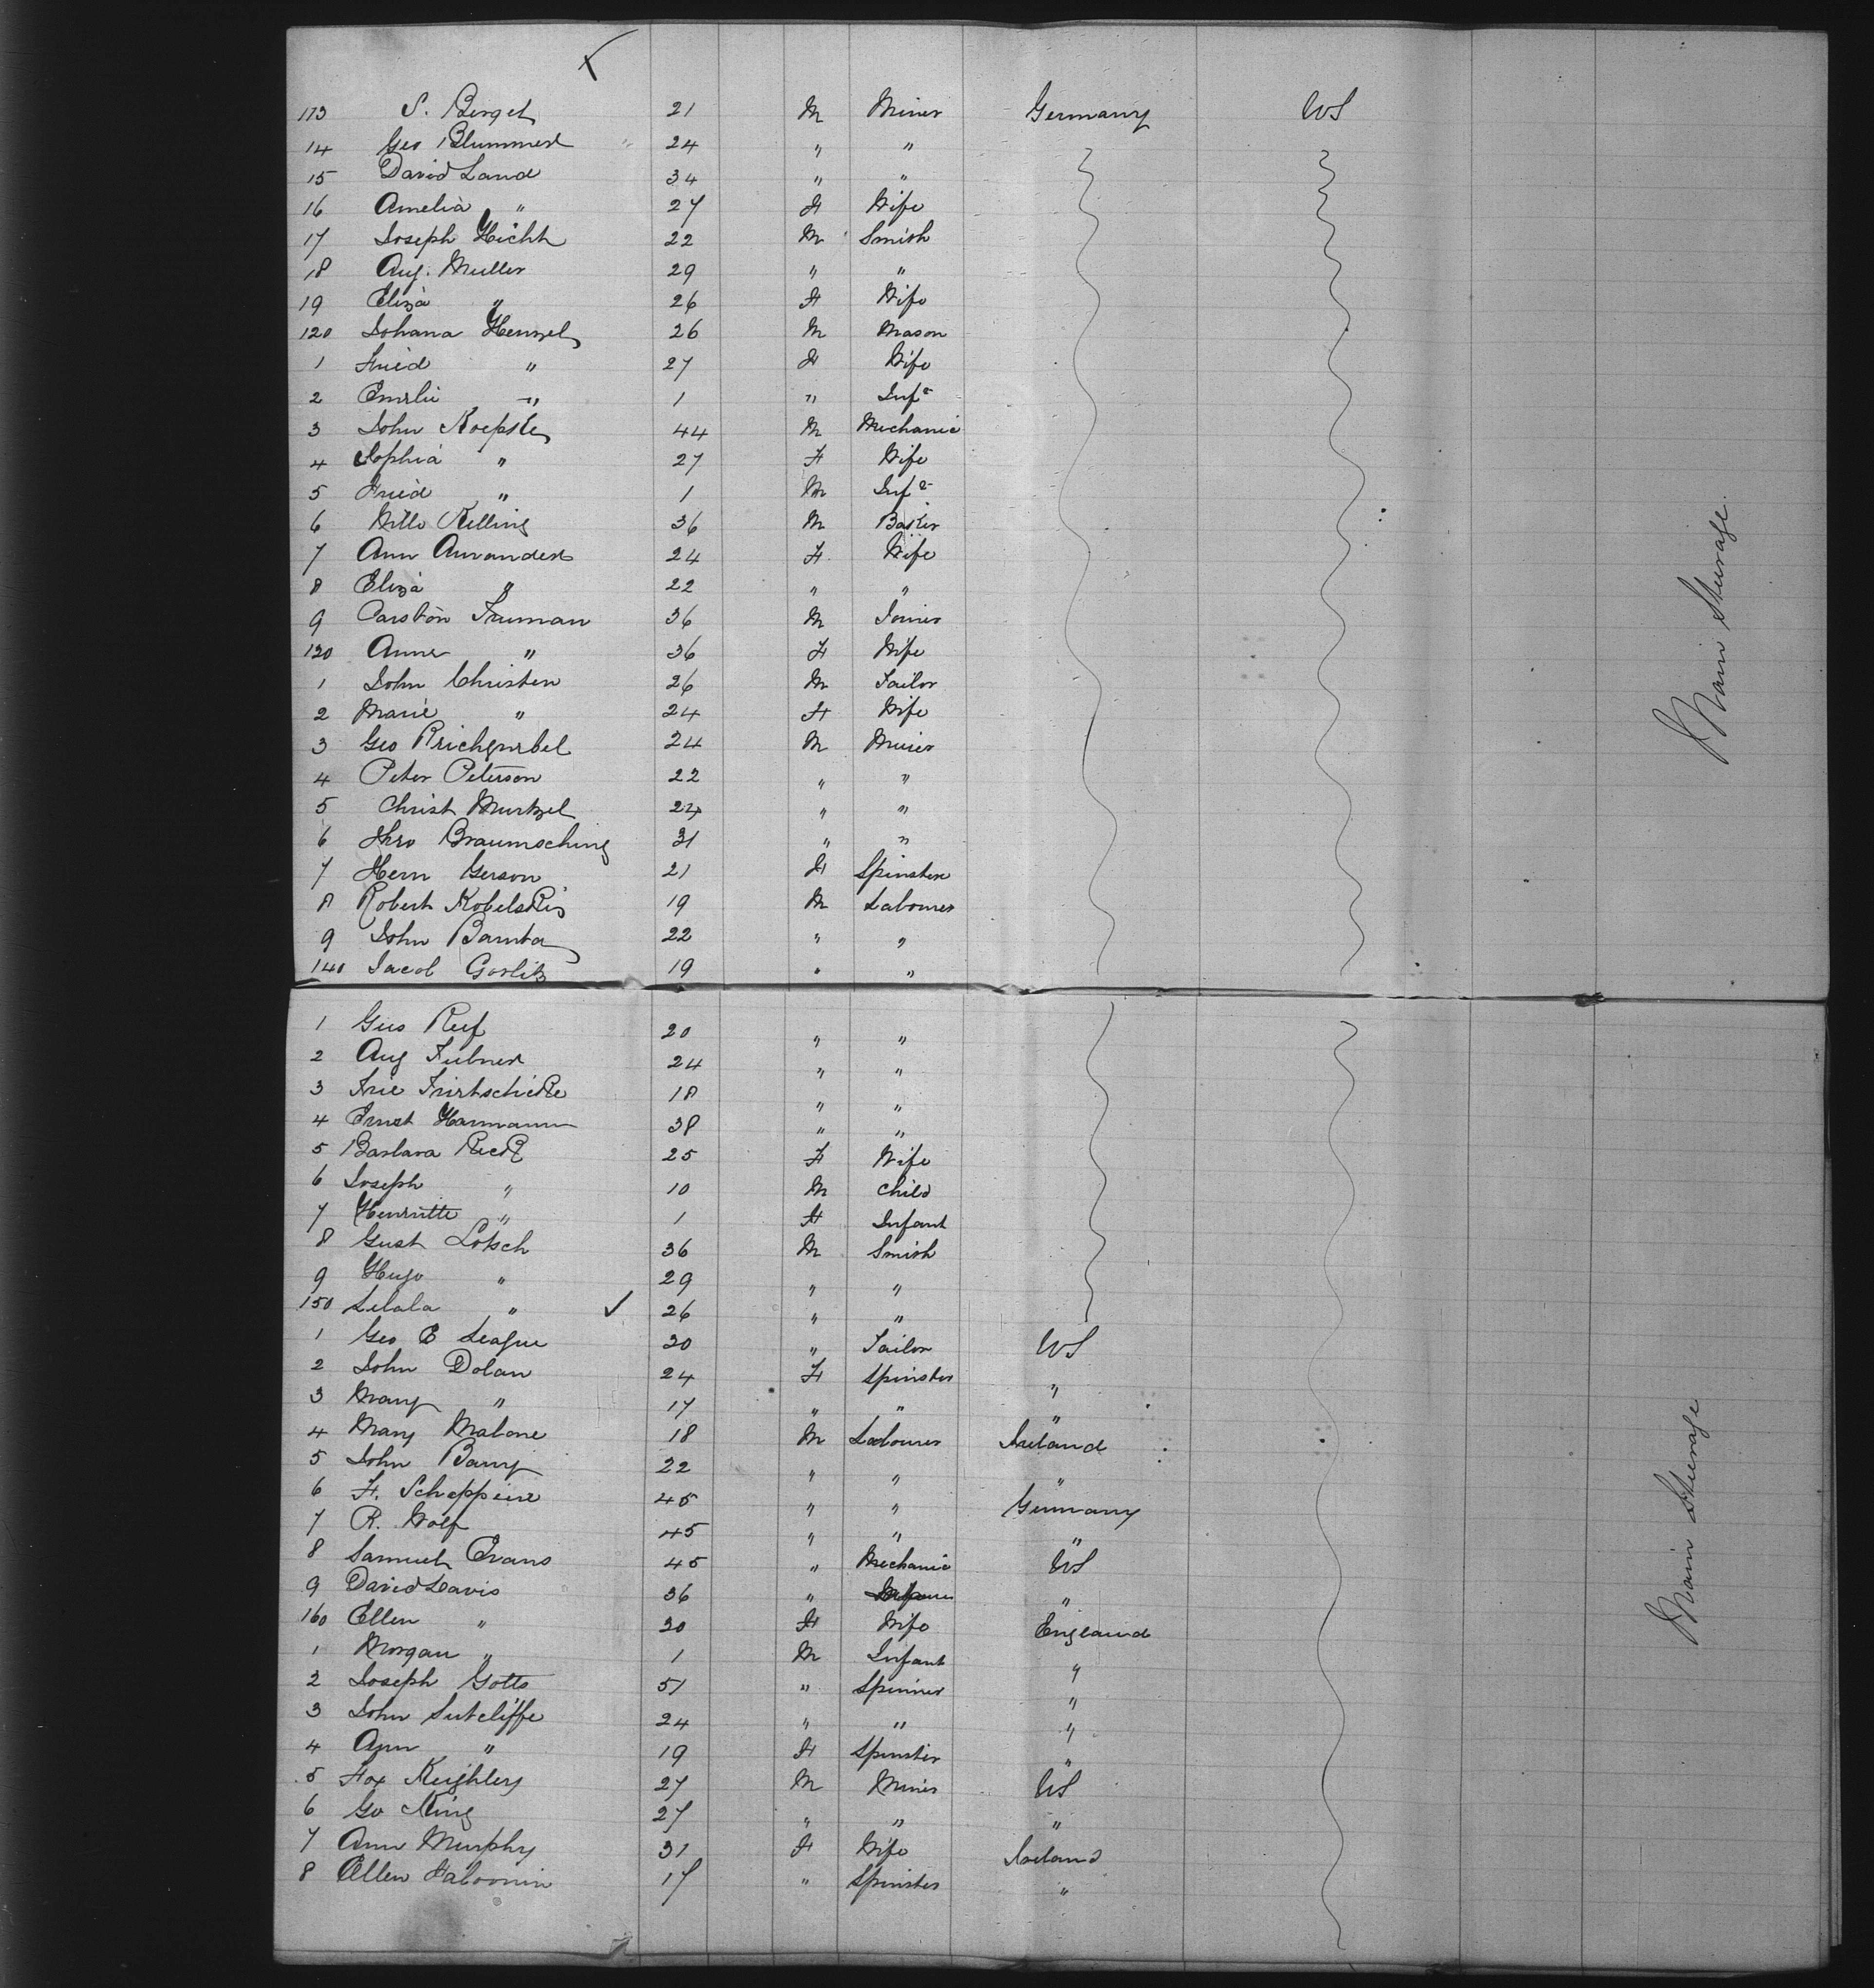 113 S. Berget 21 M Miner Germany US
14 Geo Blummert 24 " "
15 David Land 34 " "
16 Amelia " 27 F Wife
17 Joseph Hicht 22 M Smith
18 Aug. Muller 29 " "
19 Eliza " 26 F Wife
120 Johana Henzel 26 M Mason
1 Fried " 27 F Wife
2 Emelie " 1 " Inft
3 John Koepke 44 M Mechanic
4 Sophia " 27 F Wife
5 Fried " 1 M Inft
6 Kelling 36 M Baker
7 Ann 24 F Wife
8 Eliza " 22 " "
9 Carston Truman 36 M Joiner
130 Anne " 36 F Wife
1 John Christen 26 M Tailor
2 Marie " 24 F Wife
3 Geo 24 M Miner
4 Peter Peterson 22 " "
5 Christ Murtzel 24 " "
6 Braumsching 31 " "
7 Hern Gerson 21 F Spinster
8 Robert Kobelskis 19 M Labourer
9 John Barnta 22 " "
140 Jacob Gorlitz 19 " "
1 Gus Ruf 20 " "
2 Aug 24 " "
3 18 " "
4 Ernst Harmann 38 " "
5 Barbara 25 F Wife
6 Joseph " 10 M Child
7 Henriette " 1 F Infant
8 Gust Lotsch 36 M Smith
9 Hugo " 29 " "
150 " 26 " "
1 Geo E League 30 " Tailor US
2 John Dolan 24 F Spinster "
3 Mary " 17 " " "
4 Mary Malone 18 M Labourer Ireland
5 John Barry 22 " " "
6 F. 45 " " Germany
7 R. Wolf 45 " " "
8 Samuel Evans 45 " Mechanic US
9 David Davis 36 " "
160 Ellen " 30 F Wife England
1 Morgan " 1 M Infant "
2 Joseph Gotts 51 " Spinner "
3 John Sutcliffe 24 " " "
4 Ann " 19 F Spinster "
5 Fox Keighley 27 M Miner US
6 Go King 27 " " "
7 Ann Murphy 31 F Wife Ireland
8 Ellen 17 " Spinster "
Main Steerage
Main Steerage